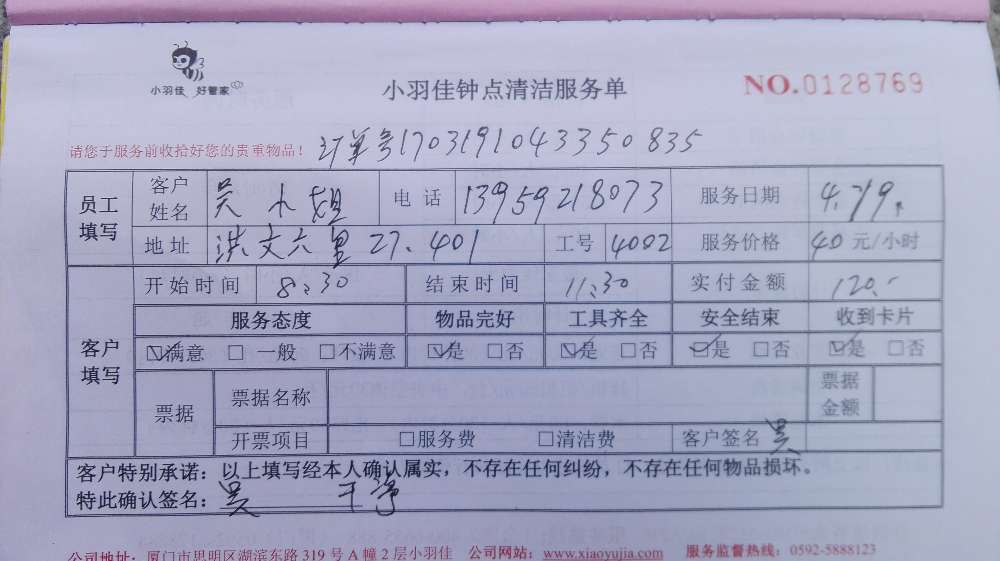 小羽佳 好管家
小羽佳钟点清洁服务单
NO.0128769
请您于服务前收拾好您的贵重物品！ 订单号1703191043350835
员工填写 客户姓名 吴小姐 电话 13959218073 服务日期 4.19.
地址 洪文六里27.401 工号 4002 服务价格 40元/小时
客户填写 开始时间 8:30 结束时间 11:30 实付金额 120.-
服务态度 物品完好 工具齐全 安全结束 收到卡片
☑满意 □一般 □不满意 ☑是 □否 ☑是 □否 ☑是 □否 ☑是 □否
票据 票据名称 票据金额
开票项目 □服务费 □清洁费 客户签名 吴
客户特别承诺：以上填写经本人确认属实，不存在任何纠纷，不存在任何物品损坏。
特此确认签名：吴 干净
公司地址：厦门市思明区湖滨东路319号A幢2层小羽佳 公司网站：www.xiaoyujia.com 服务监督热线：0592-5888123